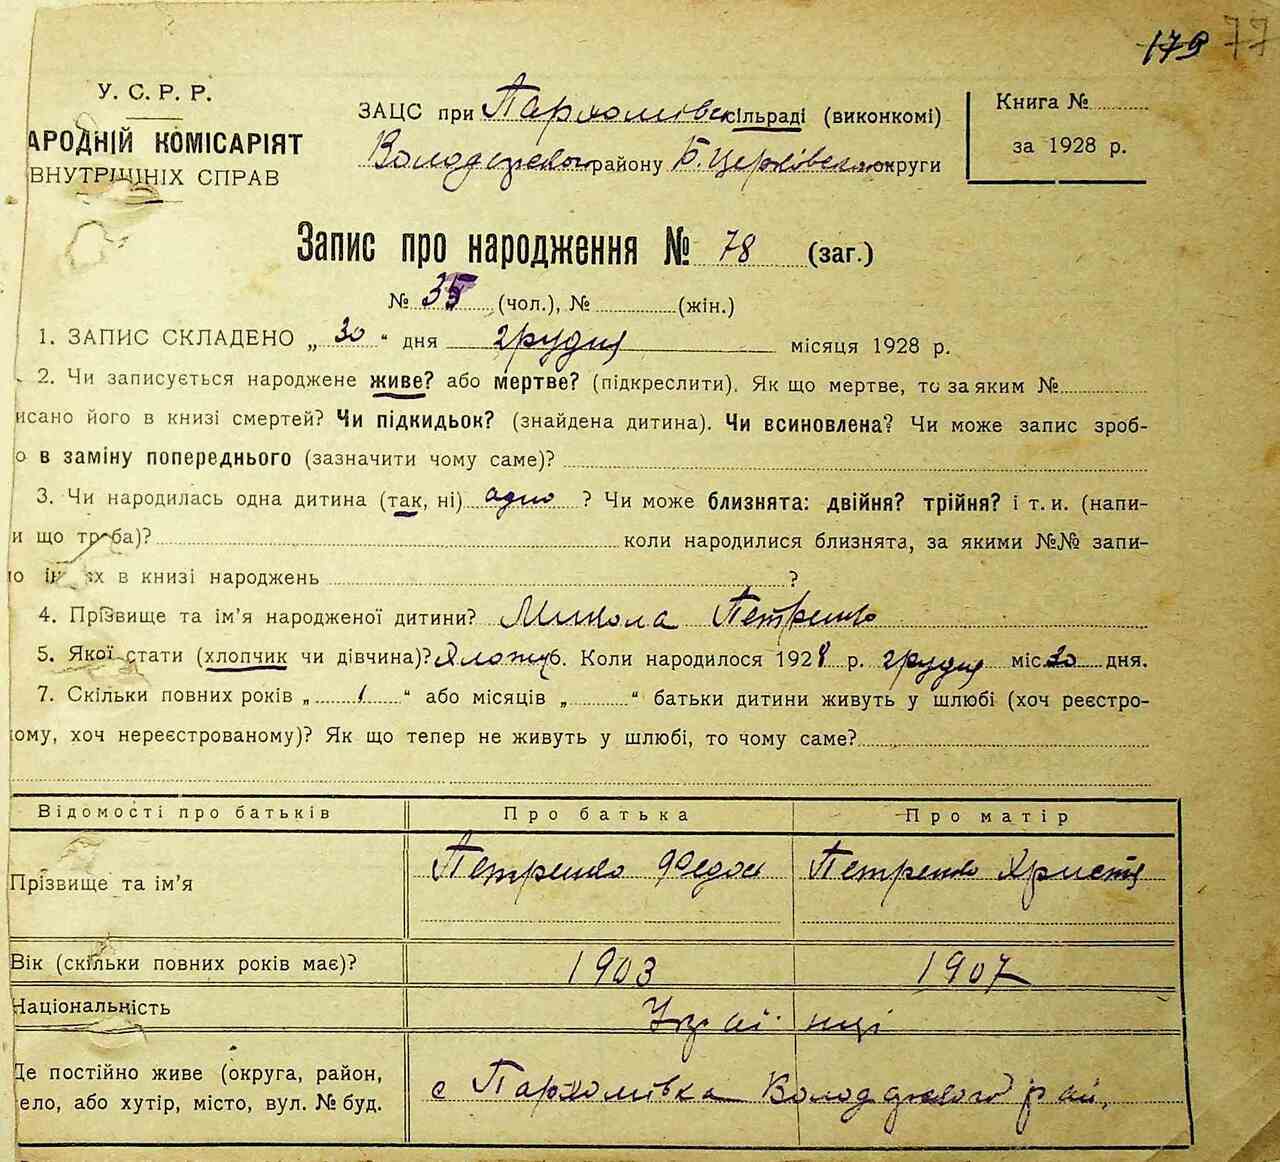 179 77
У. С. Р. Р.
АРОДНІЙ КОМІСАРІЯТ
ВНУТРІШНІХ СПРАВ
ЗАЦС при Пархомівск сільраді (виконкомі)
району Б. Церківської округи
Книга №
за 1928 р.
Запис про народження № 78 (заг.)
№ 35 (чол.), № (жін.)
1. ЗАПИС СКЛАДЕНО „30" дня грудня місяця 1928 р.
2. Чи записується народжене живе? або мертве? (підкреслити). Як що мертве, то за яким №
исано його в книзі смертей? Чи підкидьок? (знайдена дитина). Чи всиновлена? Чи може запис зроб-
о в заміну попереднього (зазначити чому саме)?
3. Чи народилась одна дитина (так, ні) одно ? Чи може близнята: двійня? трійня? і т. и. (напи-
и що треба)? коли народилися близнята, за якими №№ запи-
о їх в книзі народжень ?
4. Прізвище та ім'я народженої дитини? Микола Петренко
5. Якої стати (хлопчик чи дівчина)? Хлопчик. Коли народилося 1928 р. грудня міс. 30 дня.
7. Скільки повних років „ 1 " або місяців „ " батьки дитини живуть у шлюбі (хоч реєстро-
ому, хоч нереєстрованому)? Як що тепер не живуть у шлюбі, то чому саме?
Відомості про батьків Про батька Про матір
Прізвище та ім'я Петренко Федось Петренко Христя
Вік (скільки повних років має)? 1903 1907
Національність Українці
Де постійно живе (округа, район,
село, або хутір, місто, вул. № буд. с Пархомівка рай.